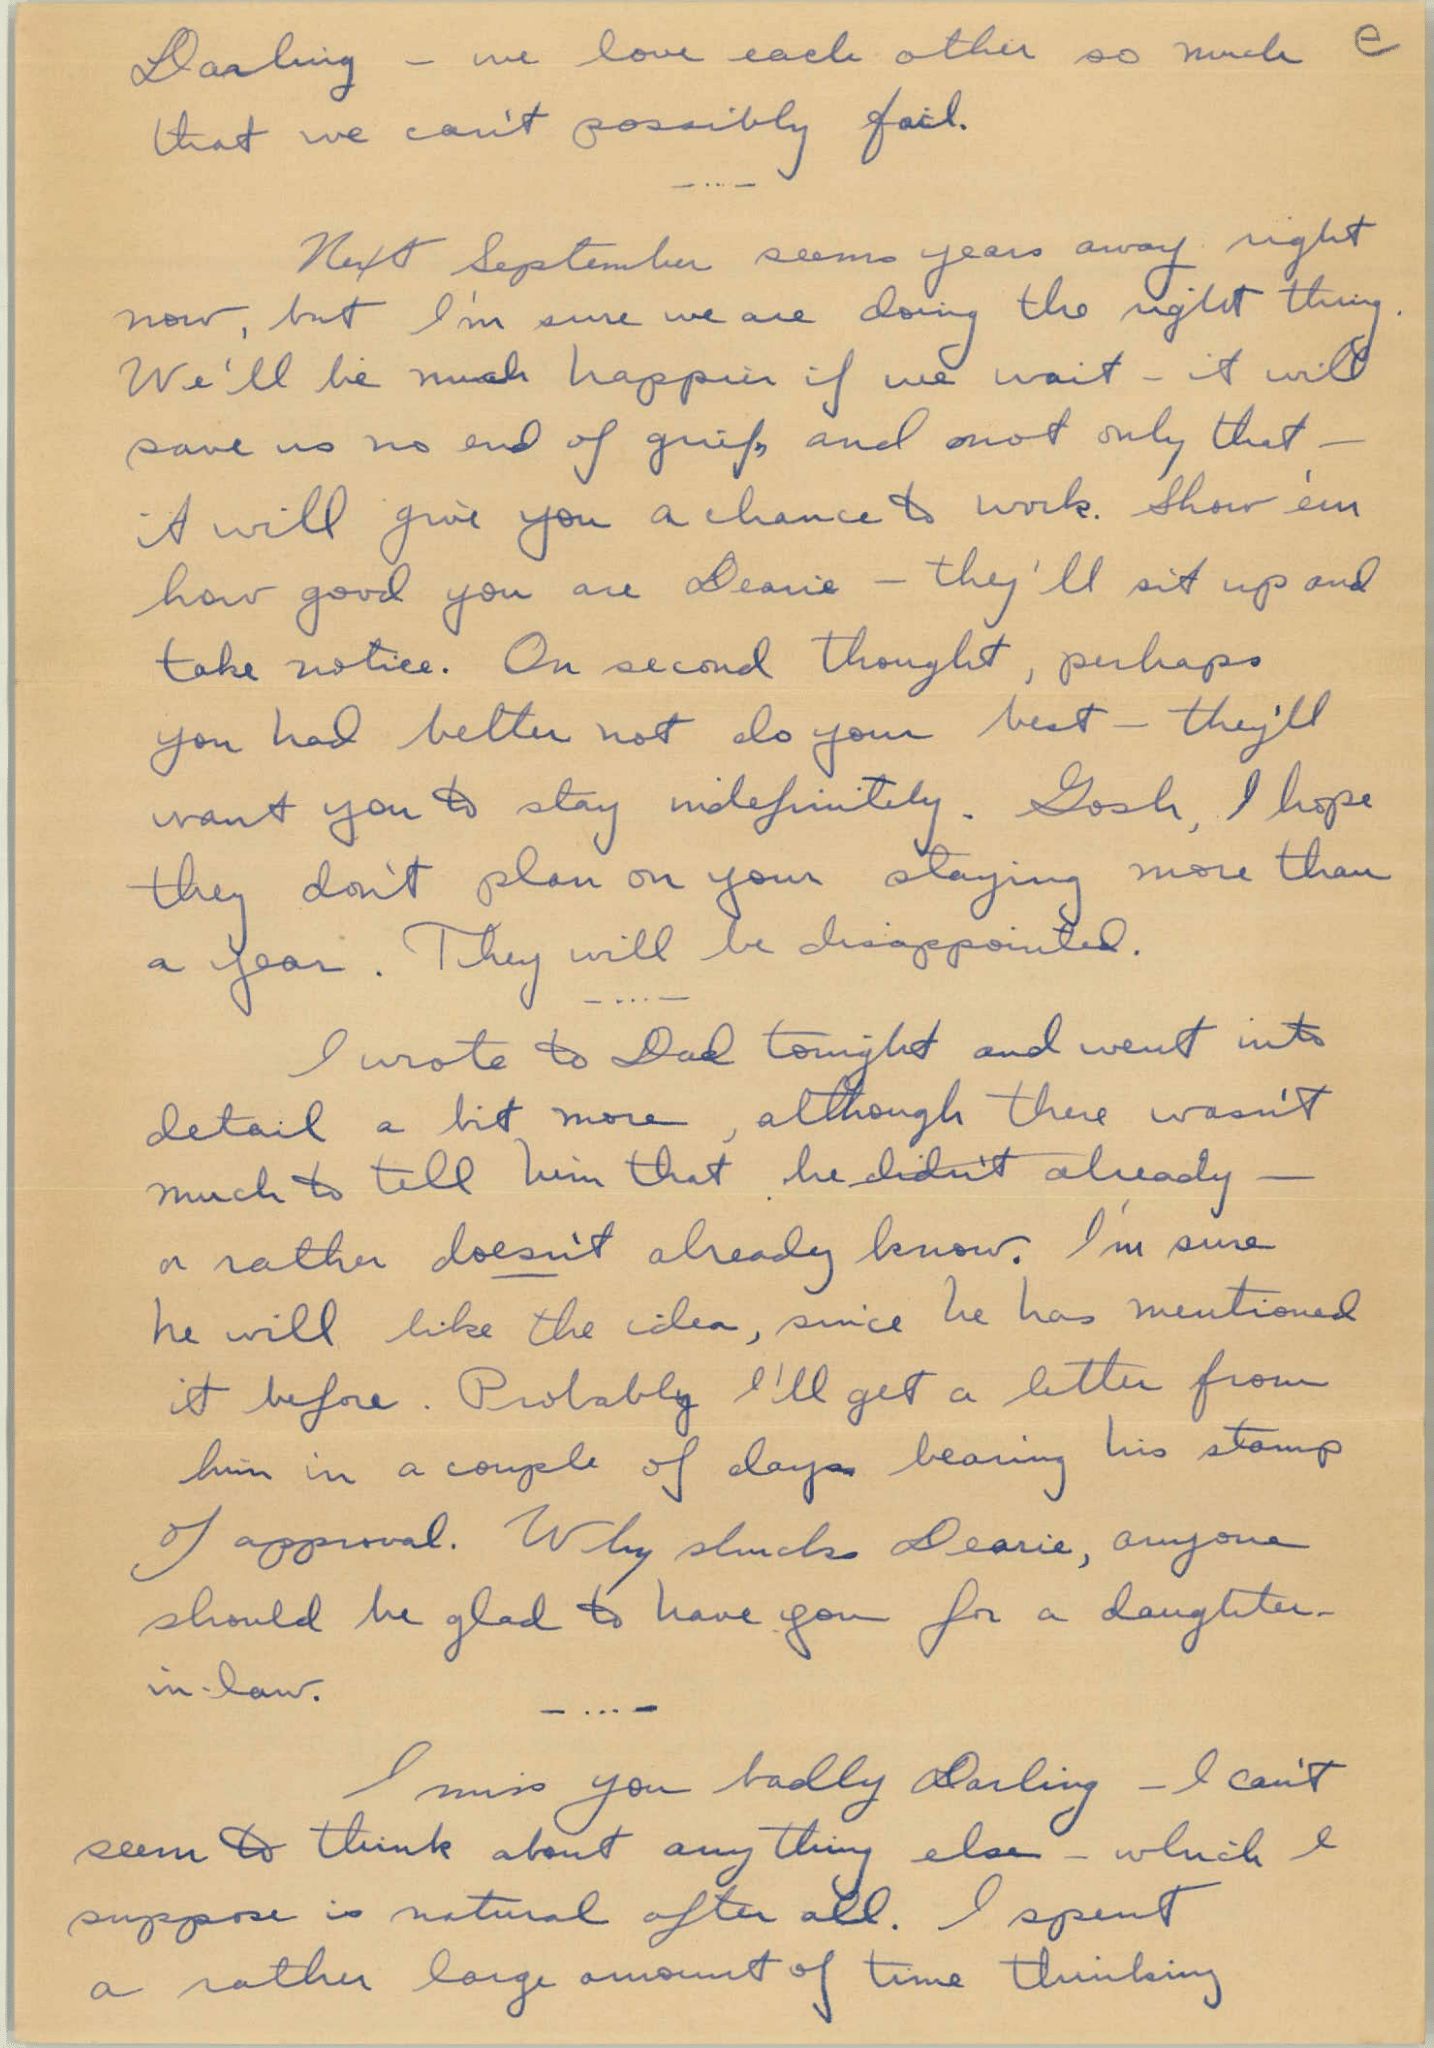 Darling – we love each other so much e
that we can't possibly fail.
– ... –
Next September seems years away right
now, but I'm sure we are doing the right thing.
We'll be much happier if we wait – it will
save us no end of grief, and not only that –
it will give you a chance to work. Show 'em
how good you are Dearie – they'll sit up and
take notice. On second thought, perhaps
you had better not do your best – they'll
want you to stay indefinitely. Gosh, I hope
they don't plan on your staying more than
a year. They will be disappointed.
– ... –
I wrote to Dad tonight and went into
detail a bit more, although there wasn't
much to tell him that he didn't already –
or rather doesn't already know. I'm sure
he will like the idea, since he has mentioned
it before. Probably I'll get a letter from
him in a couple of days bearing his stamp
of approval. Why shucks Dearie, anyone
should be glad to have you for a daughter-
in-law.
– ... –
I miss you badly Darling – I can't
seem to think about anything else – which I
suppose is natural after all. I spent
a rather large amount of time thinking